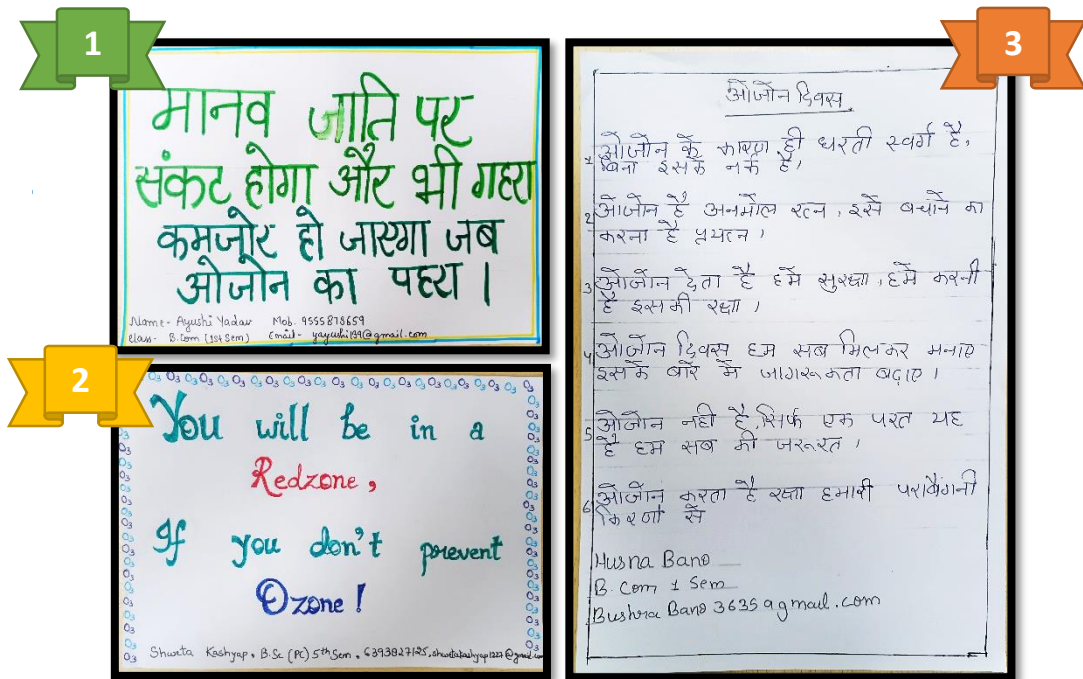 1
मानव जाति पर
संकट होगा और भी गहरा
कमजोर हो जाएगा जब
ओजोन का पहरा।
Name- Ayushi Yadav Mob. 9555873659
class- B.Com (1st Sem) Email- yayushi194@gmail.com
2
O3 O3 O3 O3 O3 O3 O3 O3 O3 O3 O3 O3 O3 O3 O3 O3 O3 O3 O3 O3
You will be in a
Redzone,
If you don't prevent
Ozone!
Shweta Kashyap. B.Sc (PC) 5th Sem. 6393827125, shwetakashyap1227@gmail.com
3
ओजोन दिवस
1 ओजोन के कारण ही धरती स्वर्ग है,
बिना इसके नर्क है।
2 ओजोन है अनमोल रत्न, इसे बचाने का
करना है प्रयत्न।
3 ओजोन देता है हमे सुरक्षा, हमे करनी
है इसकी रक्षा।
4 ओजोन दिवस हम सब मिलकर मनाए
इसके बारे मे जागरूकता बढ़ाए।
5 ओजोन नही है, सिर्फ एक परत यह
है हम सब की जरूरत।
6 ओजोन करता है रक्षा हमारी पराबैंगनी
किरणों से
Husna Bano
B. Com 1 Sem
Bushra Bano 3635@gmail.com